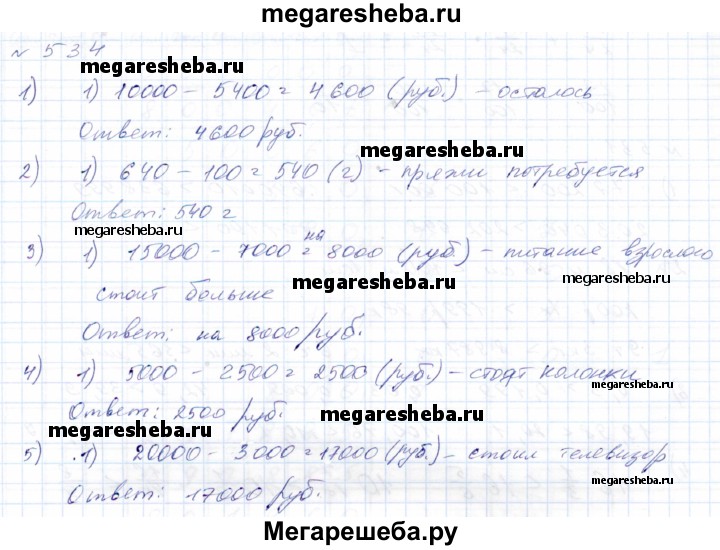 megaresheba.ru
№ 534
megaresheba.ru
1) 1) 10000 - 5400 = 4600 (руб.) - осталось
Ответ: 4600 руб.
megaresheba.ru
2) 1) 640 - 100 = 540 (г) - пряжи потребуется
Ответ: 540 г
megaresheba.ru
3) 1) 15000 - 7000 = на 8000 (руб.) - питание взрослого
megaresheba.ru
стоит больше
megaresheba.ru
Ответ: на 8000 руб.
4) 1) 5000 - 2500 = 2500 (руб.) - стоят колонки
megaresheba.ru
Ответ: 2500 руб.
megaresheba.ru
megaresheba.ru
5) 1) 20000 - 3000 = 17000 (руб.) - стоил телевизор
megaresheba.ru
Ответ: 17000 руб.
Мегарешеба.ру